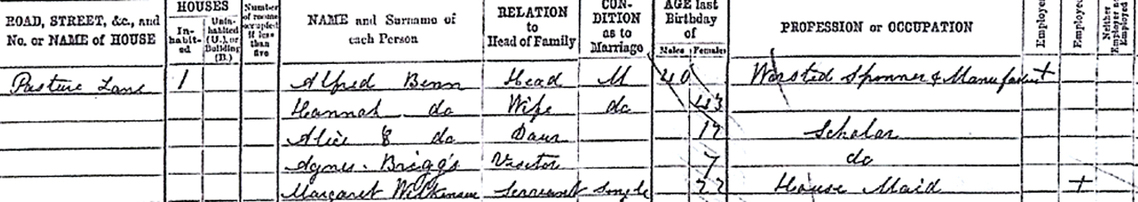 ROAD, STREET, &c., and No. or NAME of HOUSE | HOUSES In-habit-ed | Unin-habited (U.) or Building (B.) | Number of rooms occupied if less than five | NAME and Surname of each Person | RELATION to Head of Family | CON-DITION as to Marriage | AGE last Birthday of Males Females | PROFESSION or OCCUPATION | Employer | Employed | Neither Employer nor Employed
Pasture Lane 1 Alfred Benn Head M 40 Worsted Spinner &
Hannah do Wife do 43
Alice E do Daur 17 Scholar
Agnes Briggs Visitor 7 do
Margaret Wilkinson Servant Single 22 House Maid +